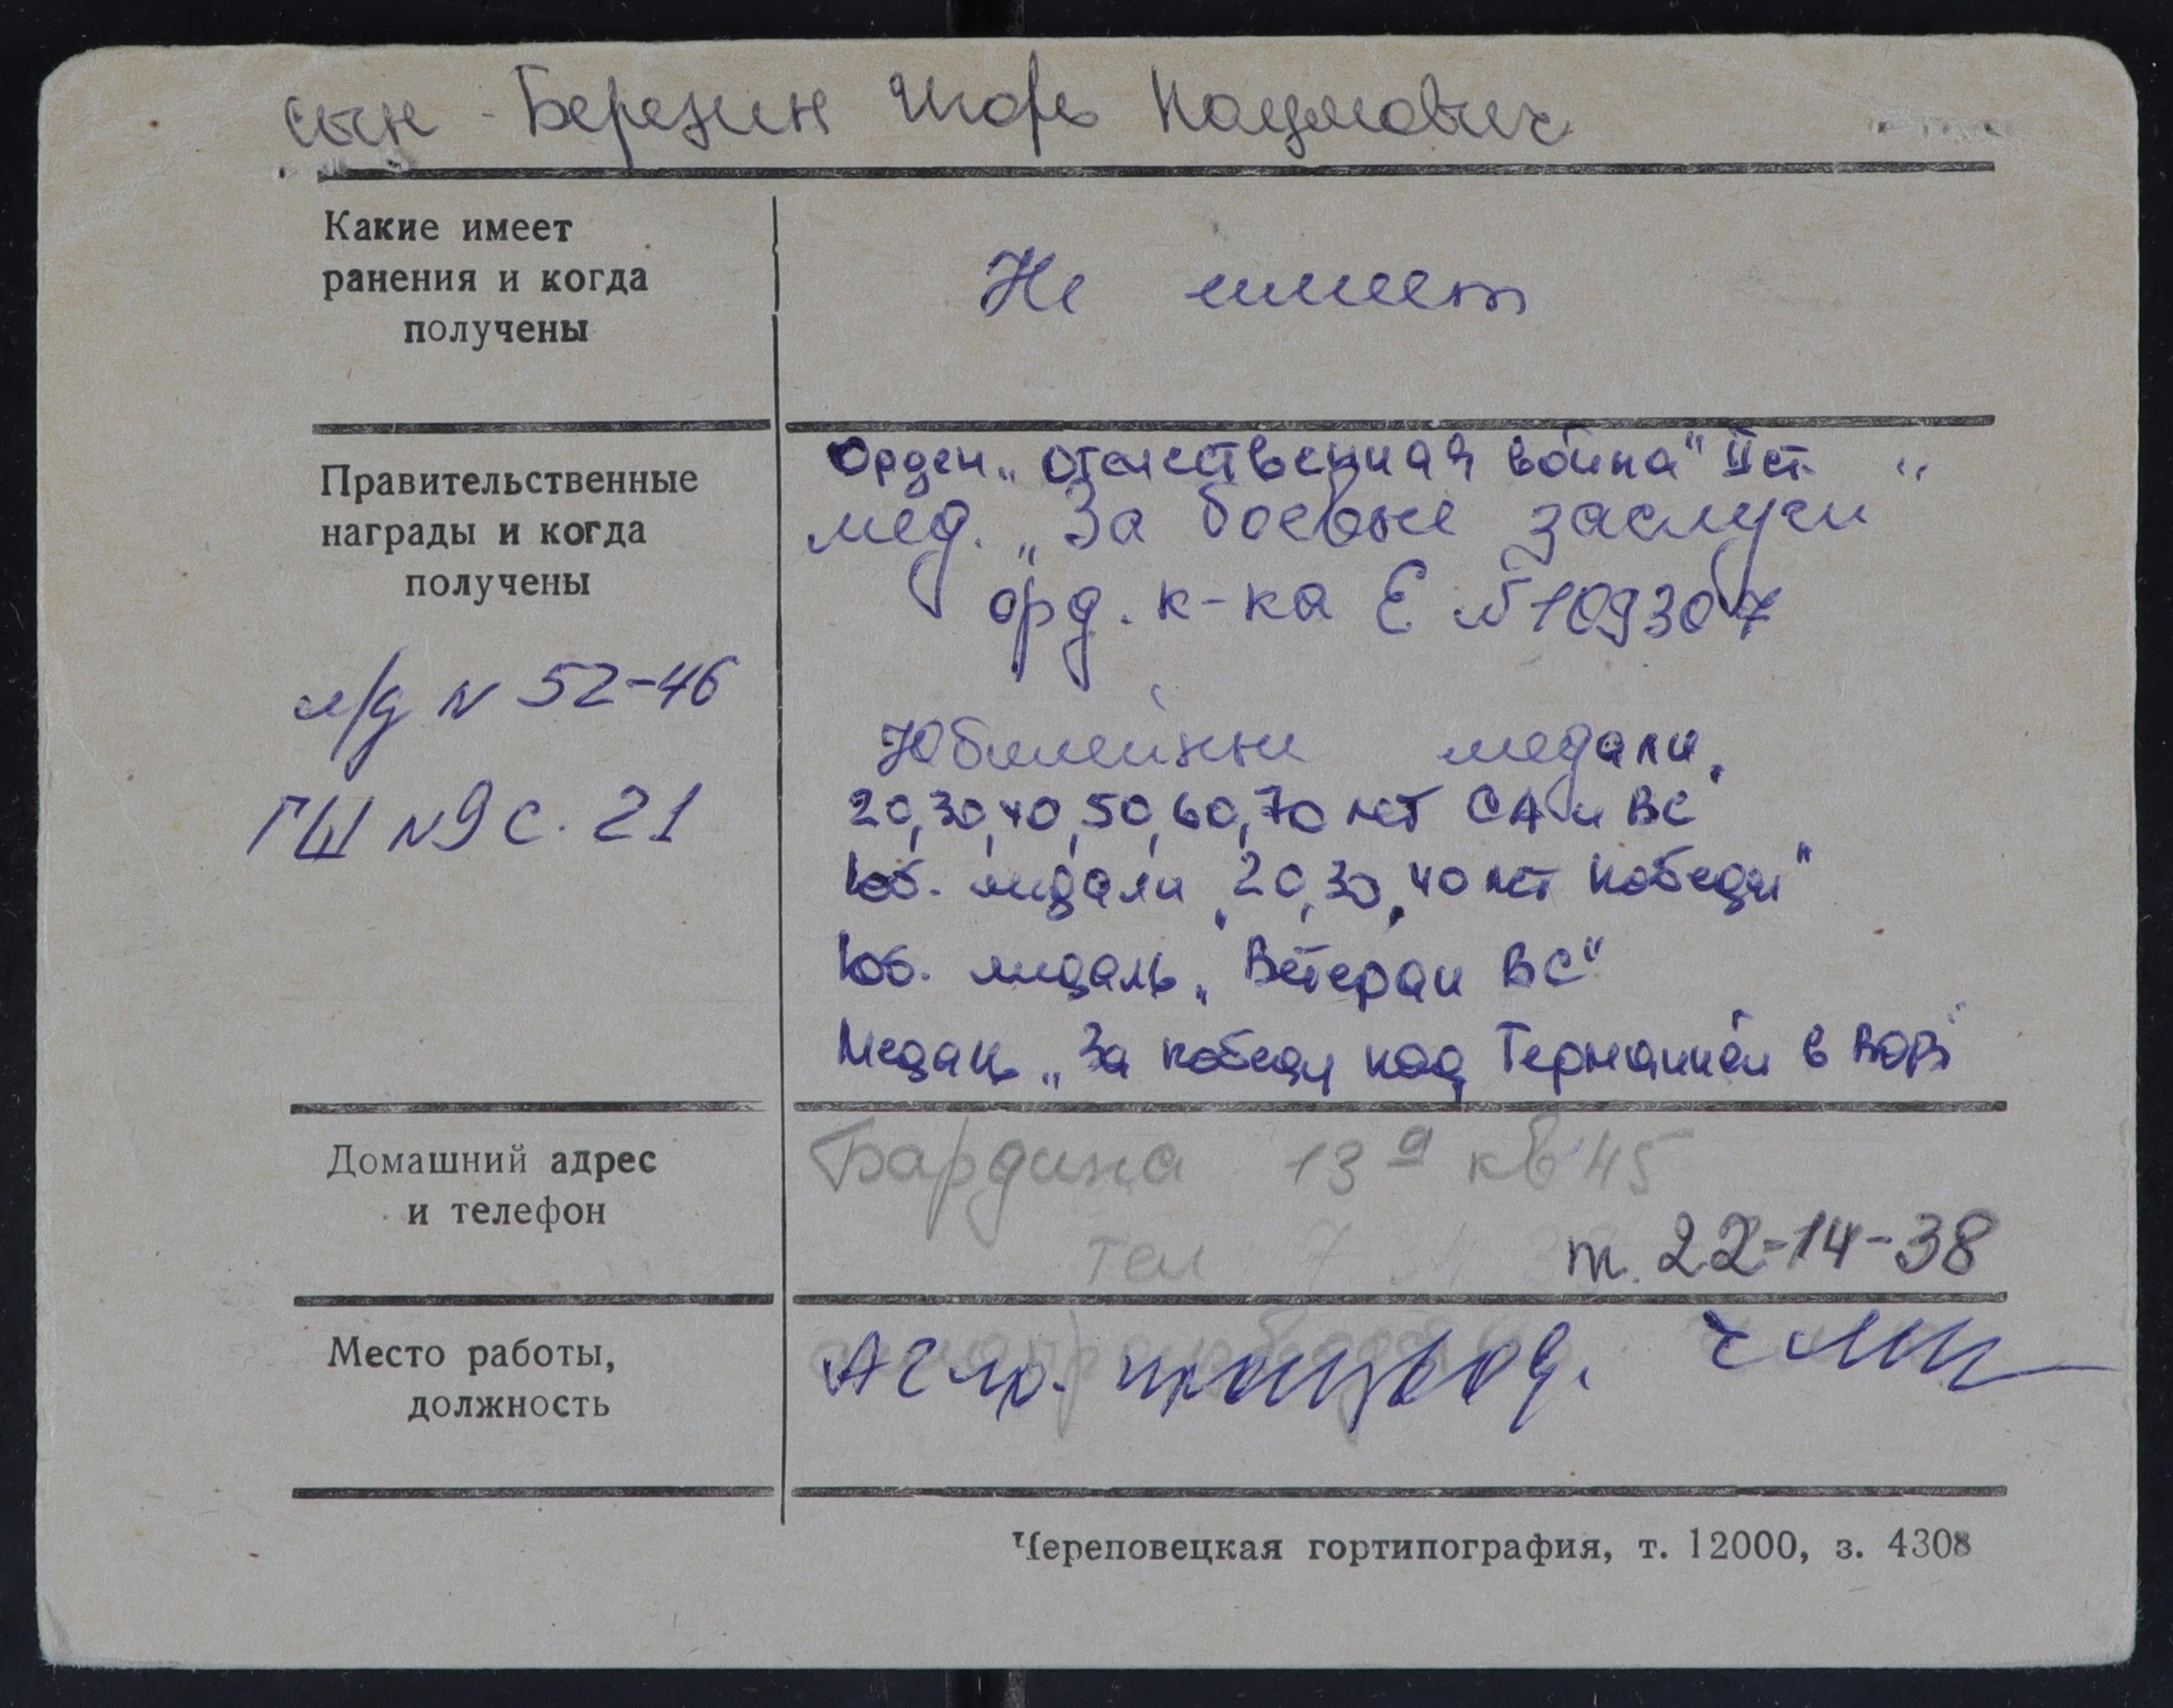 сын - Березин Игорь Наумович
Какие имеет
ранения и когда
получены
Не имеет
Правительственные
награды и когда
получены
Орден „Отечественная война" II ст.
мед. „За боевые заслуги"
орд. к-ка Е №109307
л/д N 52-46
ГШ N9 с. 21
Юбилейные медали
20, 30, 40, 50, 60, 70 лет СА и ВС
Юб. медали „20, 30, 40 лет Победы"
Юб. медаль „Ветеран ВС"
Медаль „За победу над Германией в ВОВ"
Домашний адрес
и телефон
Бардина 13а кв 45
тел
т. 22-14-38
Место работы,
должность
Череповецкая гортипография, т. 12000, з. 4308